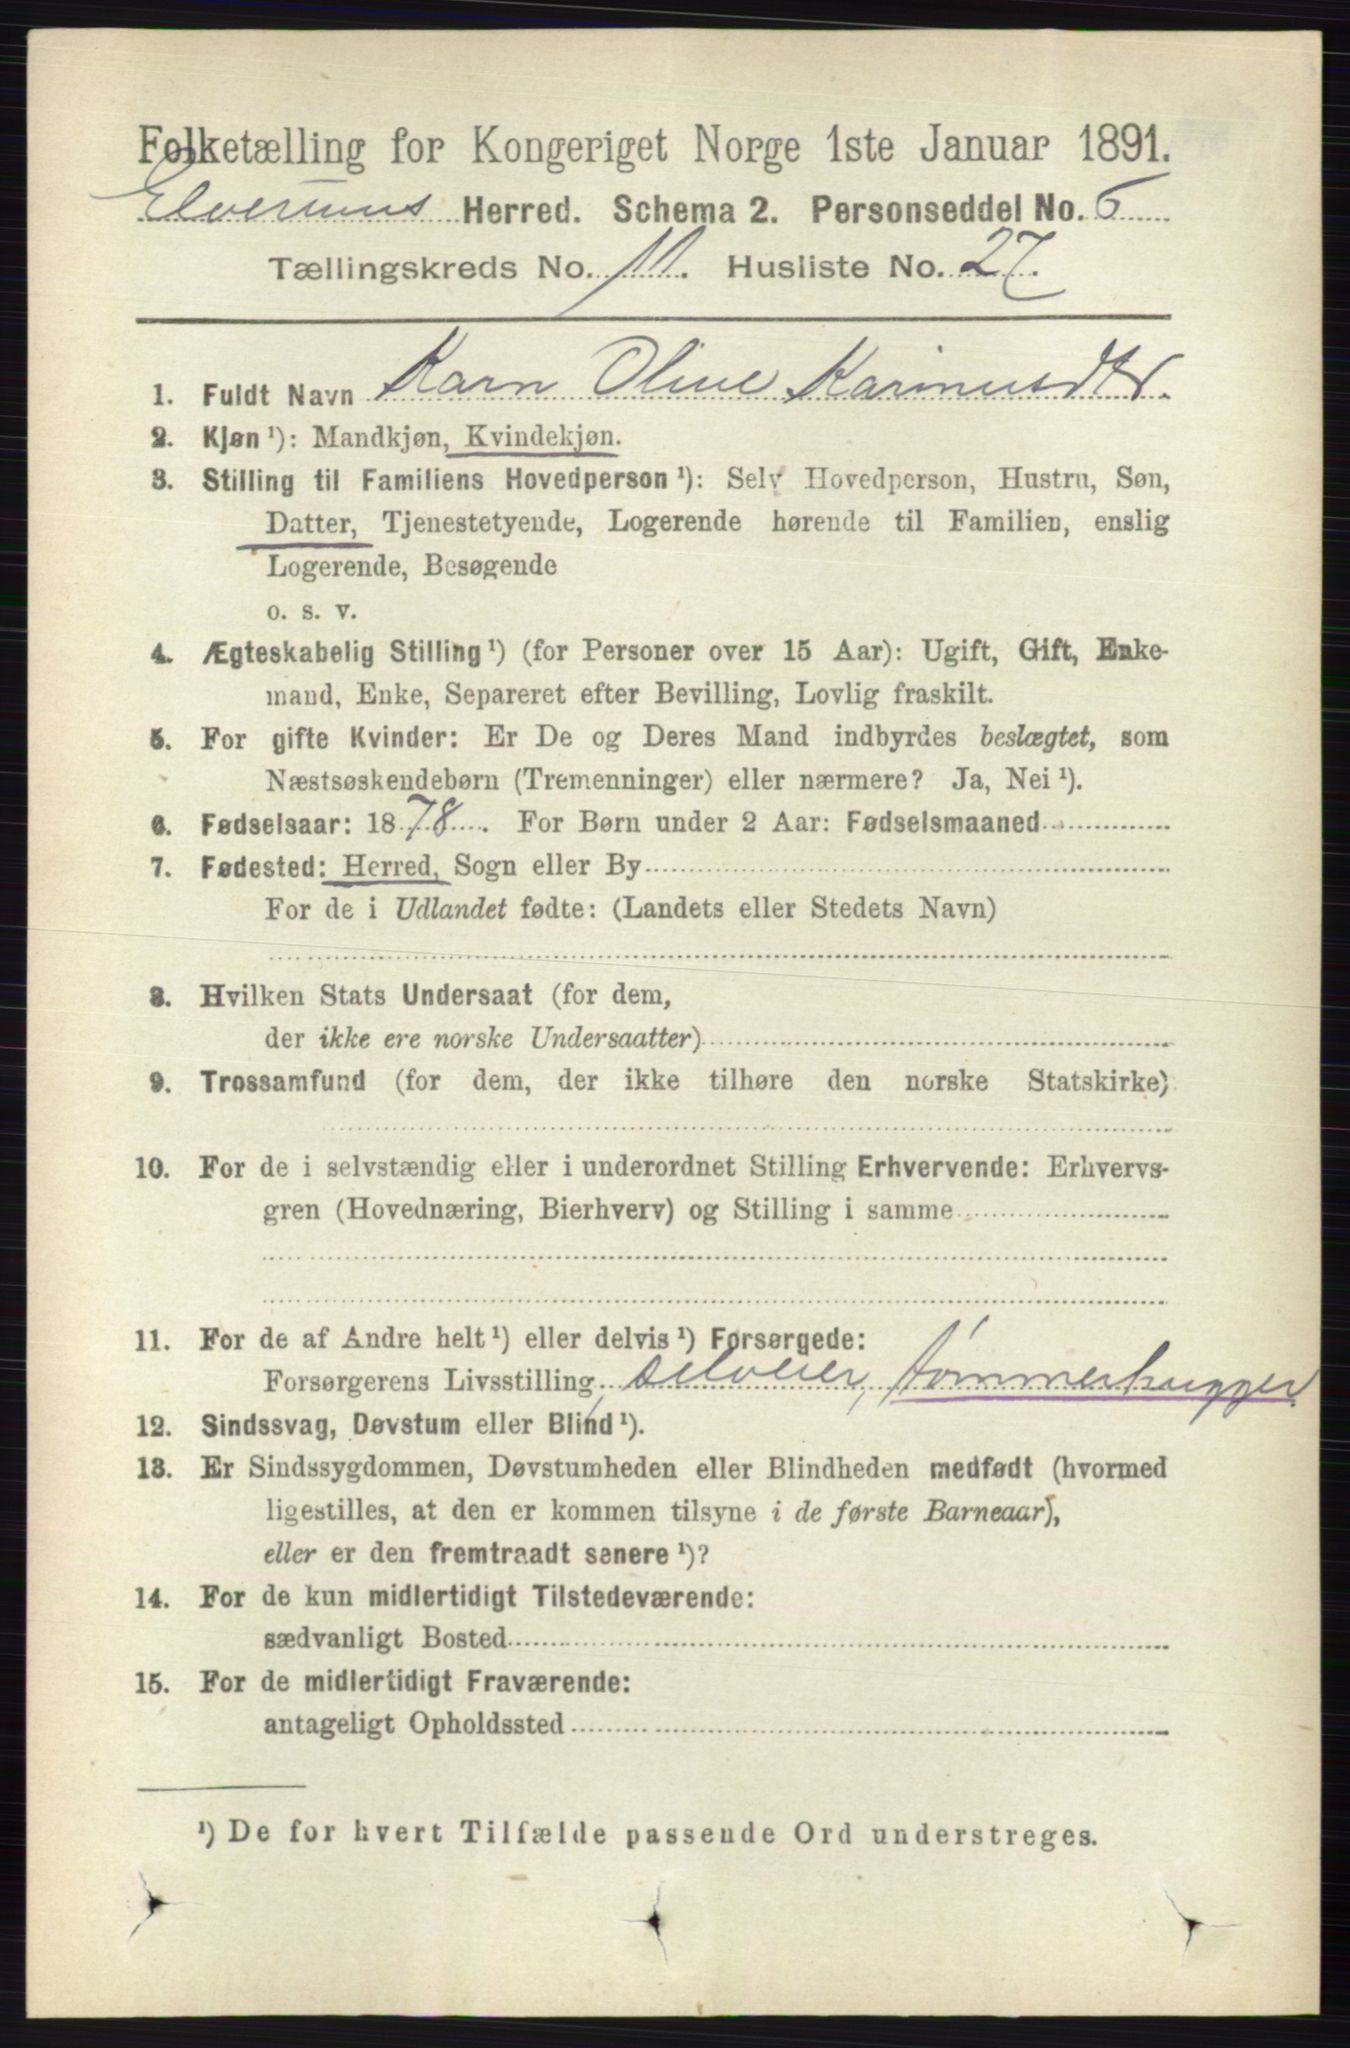 Folketælling for Kongeriget Norge 1ste Januar 1891.
Elverums Herred. Schema 2. Personseddel No. 6
Tællingskreds No. 11. Husliste No. 27.
1. Fuldt Navn Karn Oline Karinusdtr.
2. Kjøn ¹): Mandkjøn, Kvindekjøn.
3. Stilling til Familiens Hovedperson ¹): Selv Hovedperson, Hustru, Søn,
Datter, Tjenestetyende, Logerende hørende til Familien, enslig
Logerende, Besøgende
o. s. v.
4. Ægteskabelig Stilling ¹) (for Personer over 15 Aar): Ugift, Gift, Enke-
mand, Enke, Separeret efter Bevilling, Lovlig fraskilt.
5. For gifte Kvinder: Er De og Deres Mand indbyrdes beslægtet, som
Næstsøskendebørn (Tremenninger) eller nærmere? Ja, Nei ¹).
6. Fødselsaar: 1878. For Børn under 2 Aar: Fødselsmaaned
7. Fødested: Herred, Sogn eller By
For de i Udlandet fødte: (Landets eller Stedets Navn)
8. Hvilken Stats Undersaat (for dem,
der ikke ere norske Undersaatter)
9. Trossamfund (for dem, der ikke tilhøre den norske Statskirke)
10. For de i selvstændig eller i underordnet Stilling Erhvervende: Erhvervs-
gren (Hovednæring, Bierhverv) og Stilling i samme
11. For de af Andre helt ¹) eller delvis ¹) Forsørgede:
Forsørgerens Livsstilling selveier, tømmerhugger
12. Sindssvag, Døvstum eller Blind ¹).
13. Er Sindssygdommen, Døvstumheden eller Blindheden medfødt (hvormed
ligestilles, at den er kommen tilsyne i de første Barneaar),
eller er den fremtraadt senere ¹)?
14. For de kun midlertidigt Tilstedeværende:
sædvanligt Bosted
15. For de midlertidigt Fraværende:
antageligt Opholdssted
¹) De for hvert Tilfælde passende Ord understreges.